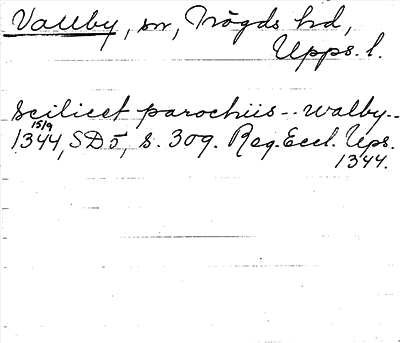 Vallby, sn, Trögds hd,
Upps. l.
scilicet parochiis -- walby --
15/9
1344, SD 5, s. 309. Reg. Eccl. Ups.
1344.